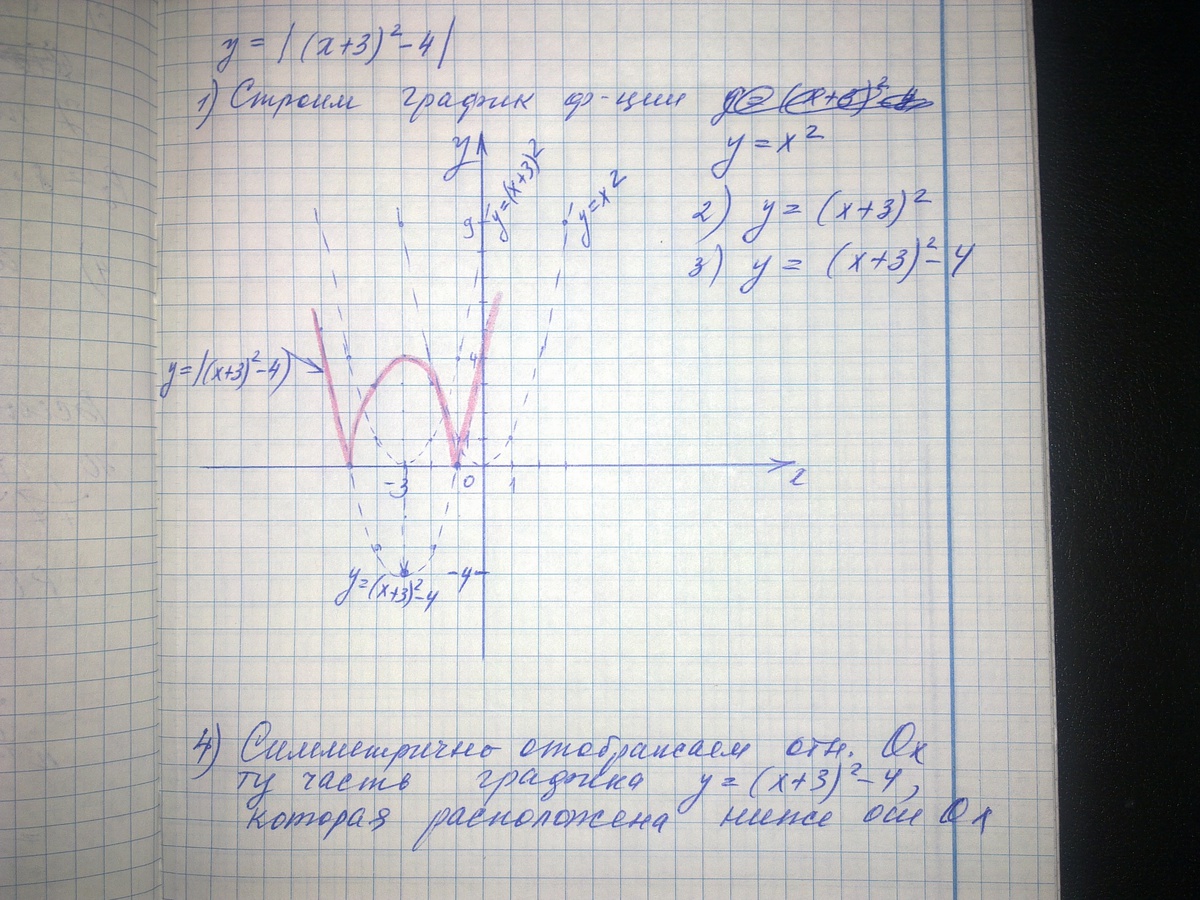 y = |(x+3)²-4|
1) Строим график ф-ции
y = x²
2) y = (x+3)²
3) y = (x+3)²-4
y
9
y=(x+3)²
y=x²
y=|(x+3)²-4)
4
-3
0
1
x
-4
y=(x+3)²-4
4) Симметрично отображаем отн. Ox
ту часть графика y=(x+3)²-4,
которая расположена ниже оси Ox